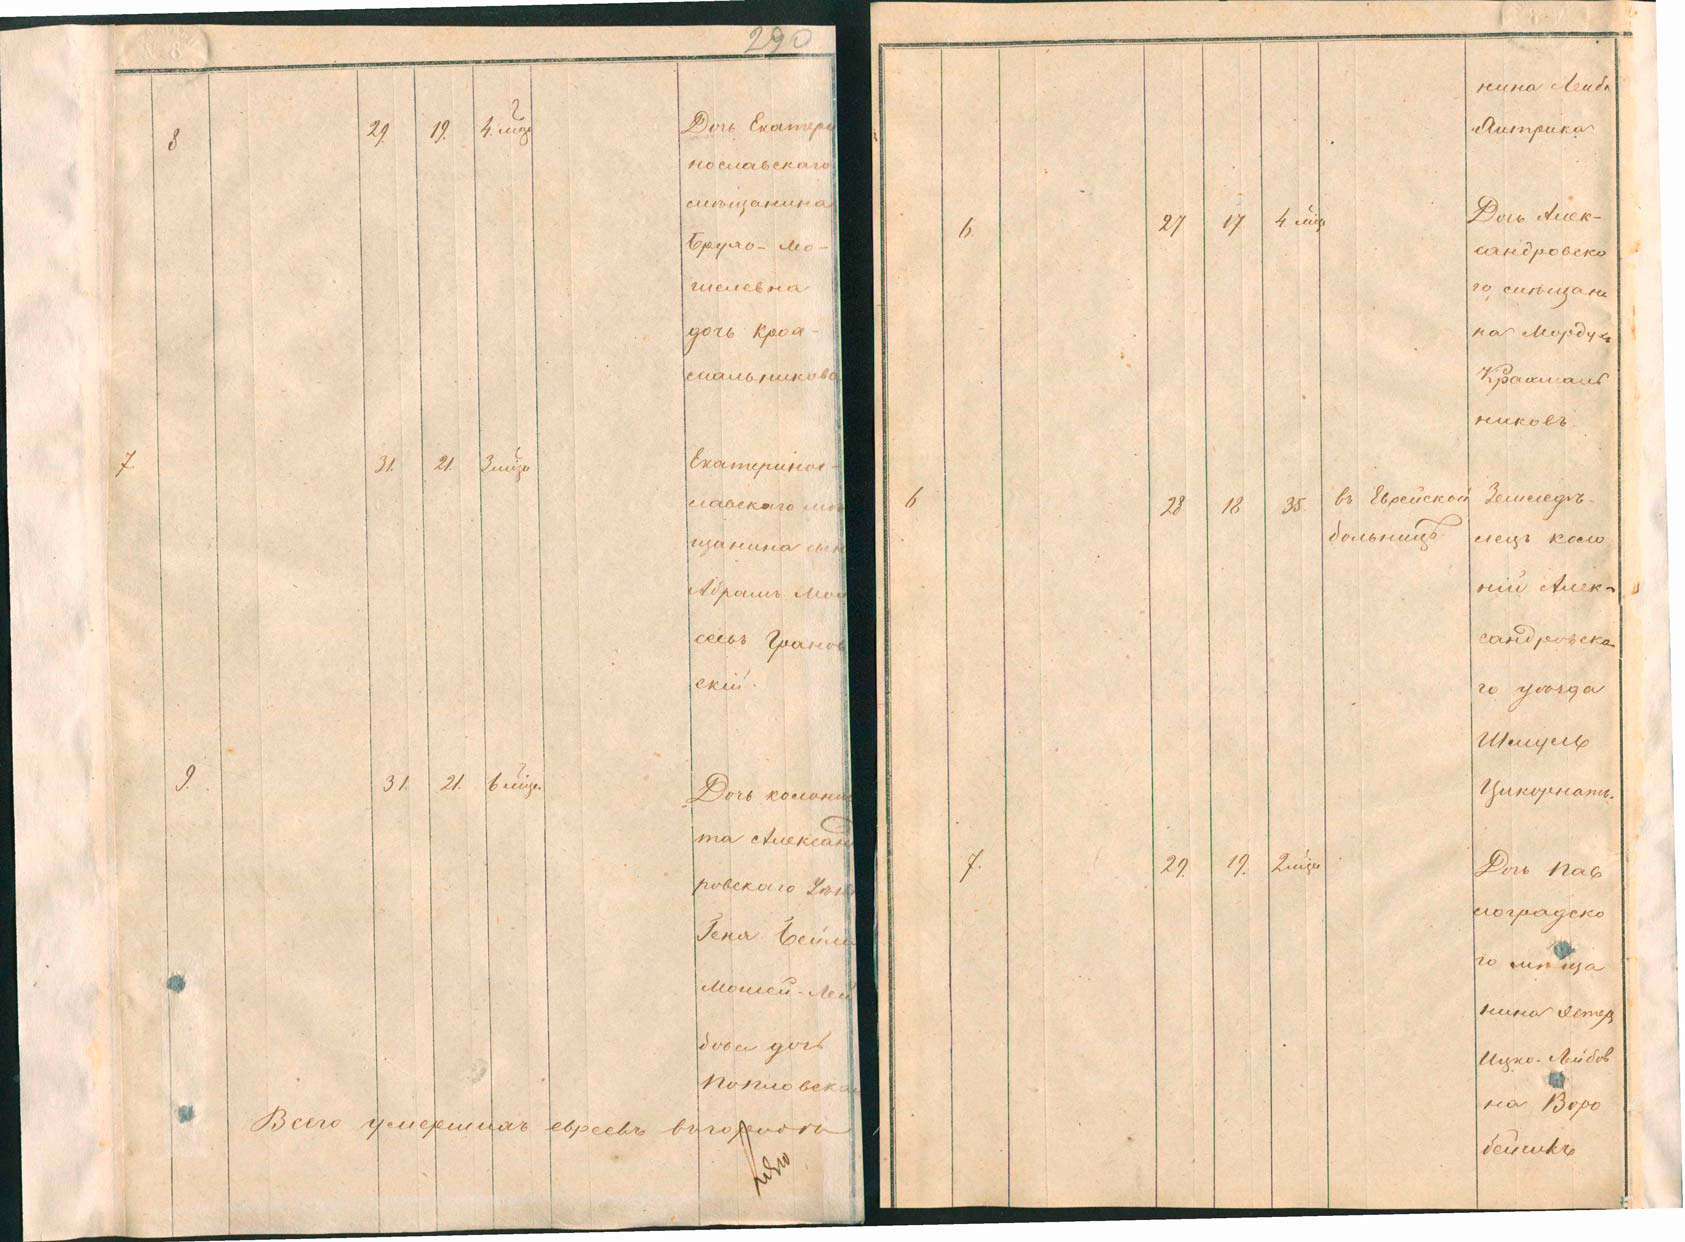 290
8 29. 19. 4 мѣся Дочь Екатери
нославскаго
мѣщанина
Мо-
шелевна
дочь Крох
мальникова
7. 31. 21. 3 мѣся Екатеринос-
лавскаго мѣ
щанина сын
Абрамъ Мои
сеевъ Гранов
скій.
9. 31. 21. 6 мѣся. Дочь колонис
та Александ
ровскаго Уѣзд
Геня Бейла
Мошей-Лей
бова дочь
Поповска
Всего умершихъ евреевъ
нина Лейб
6. 27 17 4 мѣся Дочь Алек-
сандровско
го мѣщани
на Мордух
Крахмаль
никовъ
6 28 18 35 въ Еврейской Земледѣ-
больницѣ лецъ коло
ній Алек-
сандровска
го уѣзда
Шмуль
7. 29. 19. 2 мѣся Дочь Пав
лоградско
го мѣща
нина Эстер
Ицко-Лейбов
на Воро
бейчикъ